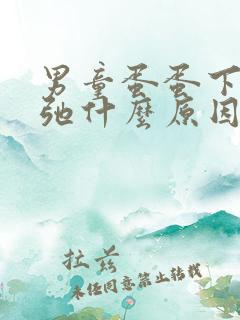 男童蛋蛋下
弛什麼原因
拉兹
未经同意禁止转载